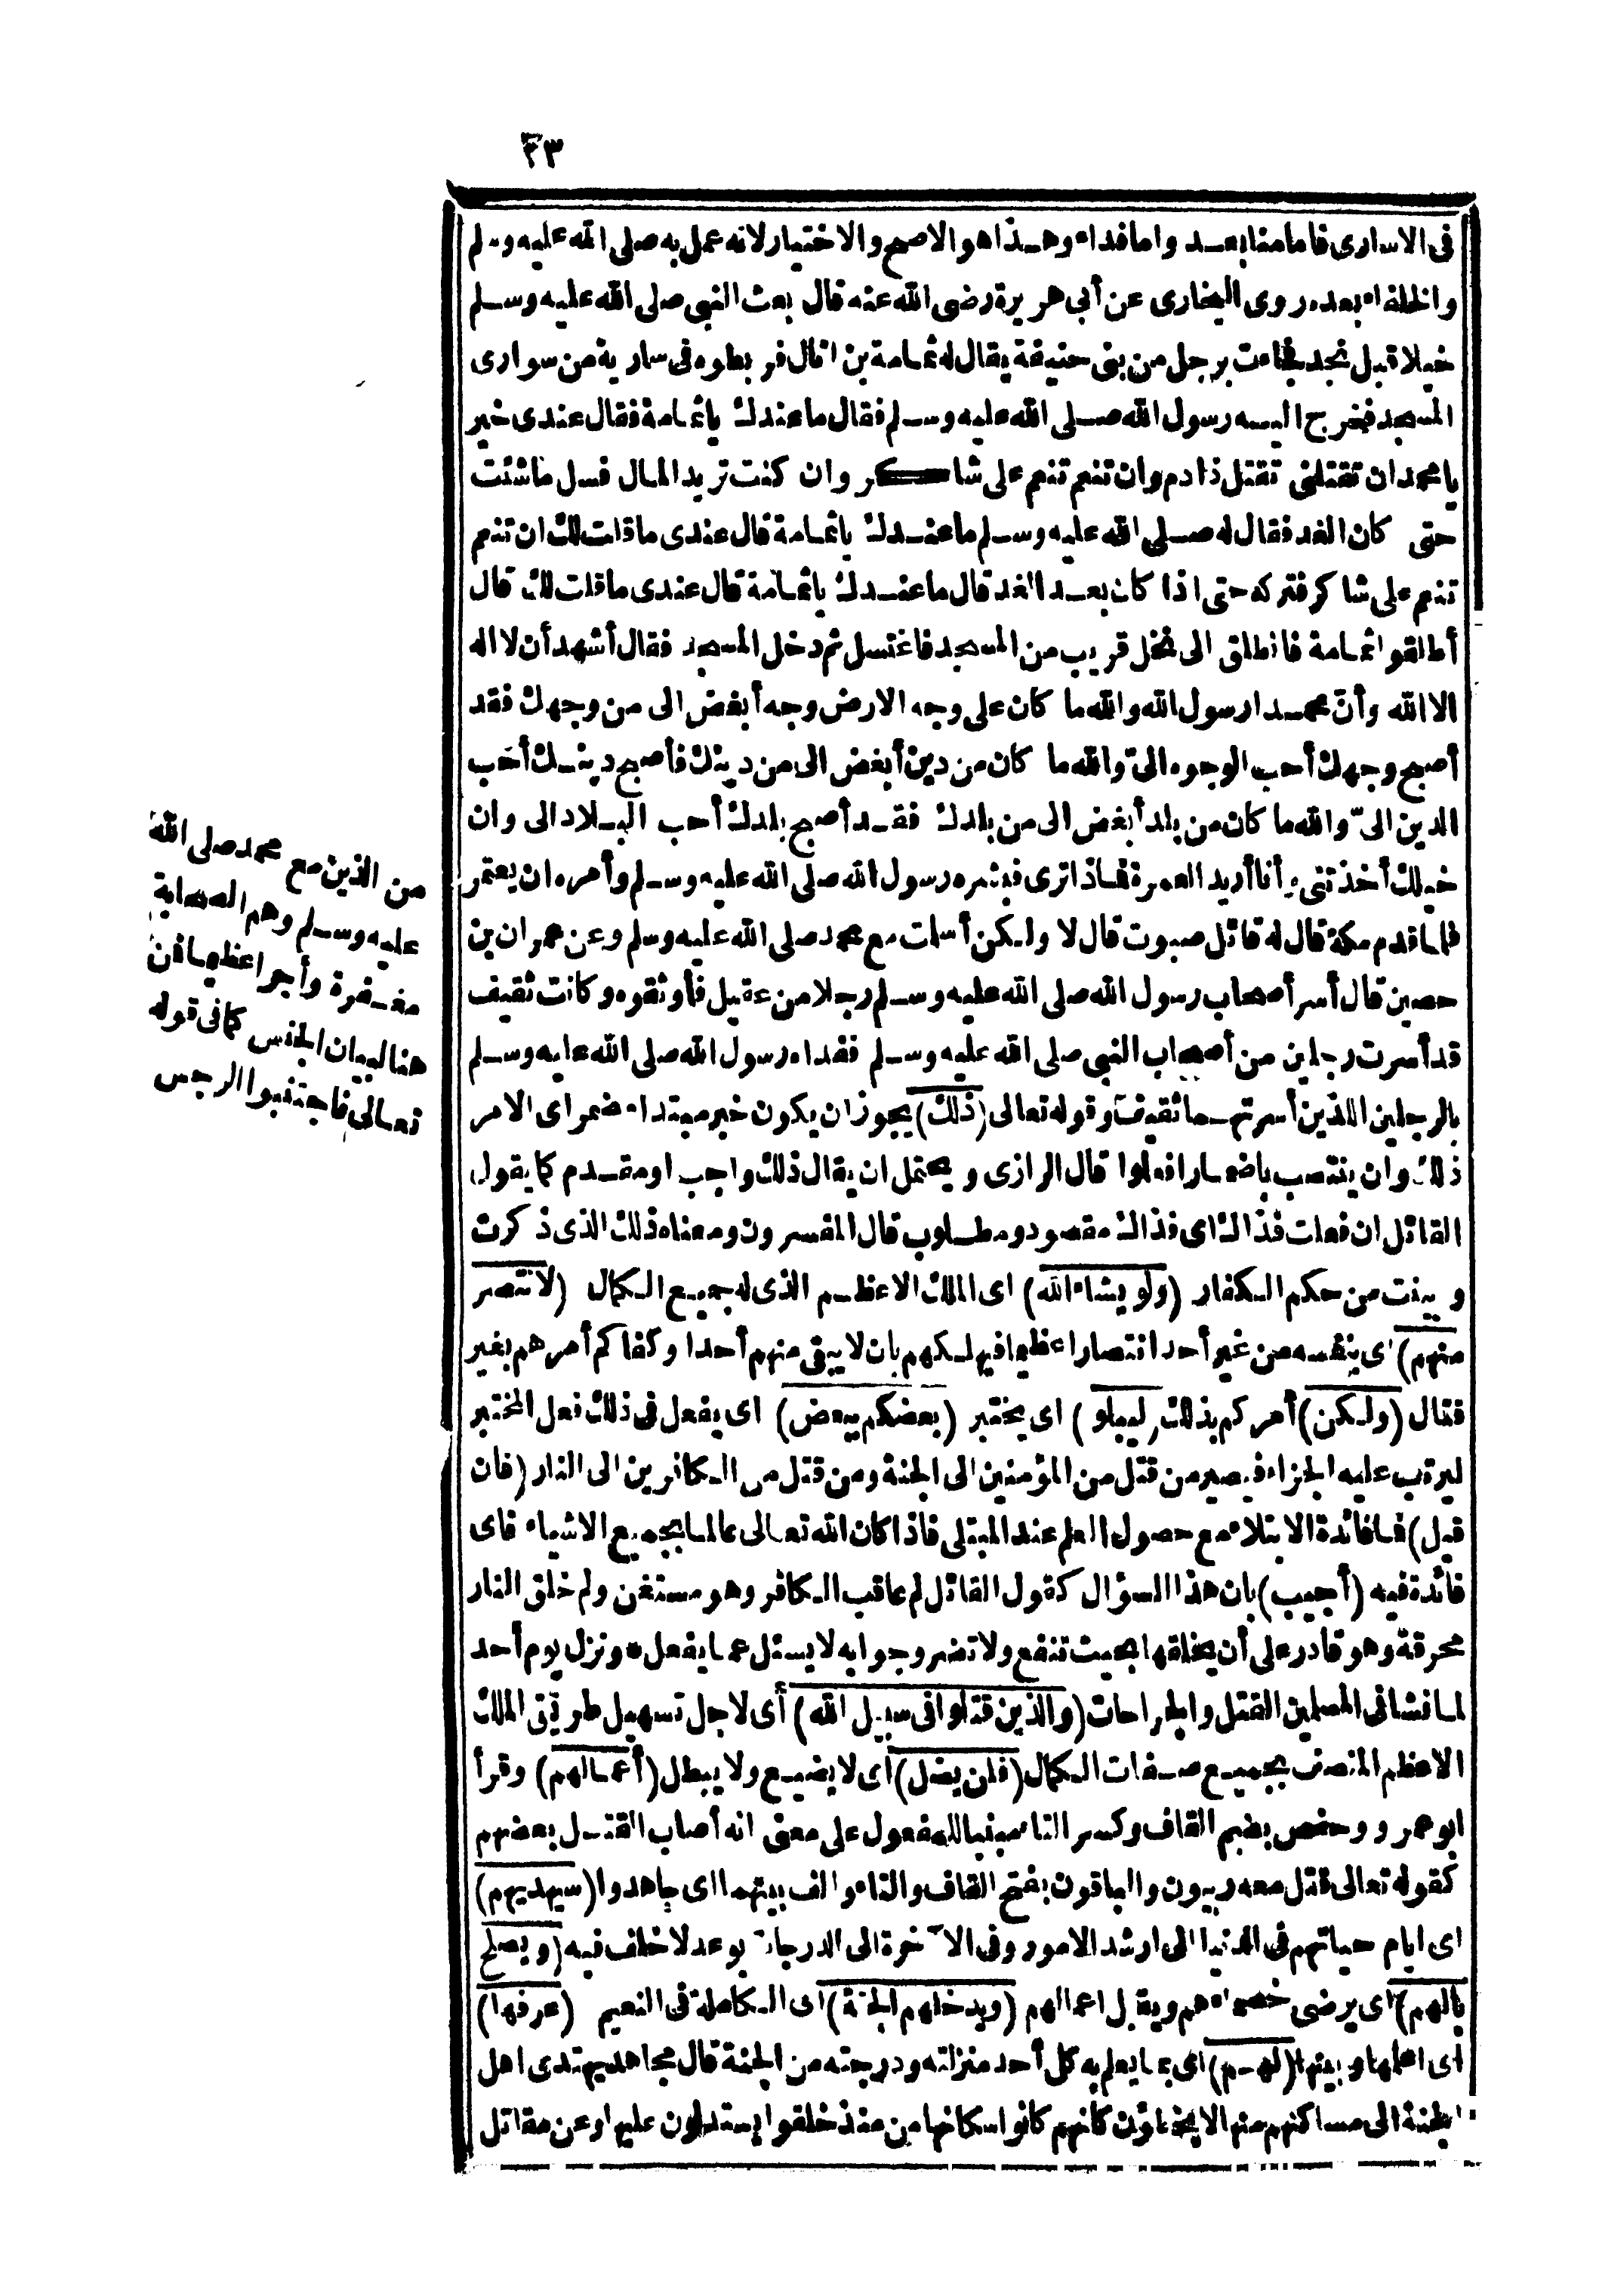 ٢٣
فى الاسارى فاما منا بعد واما فداء وهذا هو الاصح والاختيار لانه عمل به صلى الله عليه وسلم
والخلفاء بعده روى البخارى عن أبى هريرة رضى الله عنه قال بعث النبى صلى الله عليه وسلم
خيلا قبل نجد فجاءت برجل من بنى حنيفة يقال له ثمامة بن اثال فربطوه فى سارية من سوارى
المسجد فخرج اليه رسول الله صلى الله عليه وسلم فقال ما عندك يا ثمامة فقال عندى خير
يا محمد ان تقتلنى تقتل ذا دم وان تنعم تنعم على شاكر وان كنت تريد المال فسل ما شئت
حتى كان الغد فقال له صلى الله عليه وسلم ما عندك يا ثمامة قال عندى ما قلت لك ان تنعم
تنعم على شاكر فتركه حتى اذا كان بعد الغد قال ما عندك يا ثمامة قال عندى ما قلت لك قال
أطلقوا ثمامة فانطلق الى نخل قريب من المسجد فاغتسل ثم دخل المسجد فقال أشهد أن لا اله
الا الله وأنّ محمدا رسول الله والله ما كان على وجه الارض وجه أبغض الى من وجهك فقد
أصبح وجهك أحب الوجوه الىّ والله ما كان من دين أبغض الى من دينك فأصبح دينك أحب
الدين الىّ والله ما كان من بلد أبغض الى من بلدك فقد أصبح بلدك أحب البلاد الى وان
خيلك أخذتنى وأنا أريد العمرة فماذا ترى فبشره رسول الله صلى الله عليه وسلم وأمره ان يعتمر
فلما قدم مكة قال له قائل صبوت قال لا ولكن أسلمت مع محمد صلى الله عليه وسلم وعن عمران بن
حصين قال أسر أصحاب رسول الله صلى الله عليه وسلم رجلا من عقيل فأوثقوه وكانت ثقيف
قد أسرت رجلين من أصحاب النبى صلى الله عليه وسلم ففداه رسول الله صلى الله عليه وسلم
بالرجلين اللذين أسرتهما ثقيف وقوله تعالى (ذلك) يجوز ان يكون خبر مبتداء مضمر اى الامر
ذلك وان ينتصب باضمار افعلوا قال الرازى ويحتمل ان يقال ذلك واجب او مقدم كما يقول
القائل ان فعلت فذاك اى فذاك مقصود ومطلوب قال المفسرون ومعناه ذلك الذى ذكرت
وبينت من حكم الكفار (ولو يشاء الله) اى الملك الاعظم الذى له جميع الكمال (لانتصر
منهم) اى بنفسه من غير أحد انتصارا عظيما فيهلكهم بان لا يبقى منهم أحدا وكفاكم أمرهم بغير
قتال (ولكن) أمركم بذلك (ليبلو) اى يختبر (بعضكم ببعض) اى يفعل فى ذلك فعل المختبر
ليرتب عليه الجزاء فيصير من قتل من المؤمنين الى الجنة ومن قتل من الكافرين الى النار (فان
قيل) فما فائدة الابتلاء مع حصول العلم عند المبتلى فاذا كان الله تعالى عالما بجميع الاشياء فاى
فائدة فيه (أجيب) بان هذا السؤال كقول القائل لم عاقب الكافر وهو مستغن ولم خلق النار
محرقة وهو قادر على أن يخلقها بحيث تنفع ولا تضر وجوابه لا يسئل عما يفعل * ونزل يوم أحد
لما نشا فى المسلمين القتل والجراحات (والذين قتلوا فى سبيل الله) أى لاجل تسهيل طريق الملك
الاعظم المتصف بجميع صفات الكمال (فلن يضل) اى لا يضيع ولا يبطل (أعمالهم) وقرأ
ابو عمرو وحفص بضم القاف وكسر التاء مبنيا للمفعول على معنى انه أصاب القتل بعضهم
كقوله تعالى قتل معه ربيون والباقون بفتح القاف والتاء والف بينهما اى جاهدوا (سيهديهم)
اى ايام حياتهم فى الدنيا الى ارشد الامور وفى الآخرة الى الدرجات بوعد لا خلف فيه (ويصلح
بالهم) اى يرضى خصماءهم ويقبل اعمالهم (ويدخلهم الجنة) اى الكاملة فى النعيم (عرفها)
اى اعلمها وبينها (لهم) اى بما يعلم به كل أحد منزلته ودرجته من الجنة قال مجاهد يهتدى اهل
الجنة الى مساكنهم منها لا يخطؤن كانهم كانوا سكانها من منذ خلقوا يستدلون عليها وعن مقاتل
من الذين مع محمد صلى الله
عليه وسلم وهم الصحابة
مغفرة وأجرا عظيما فمن
هنا لبيان الجنس كما فى قوله
تعالى فاجتنبوا الرجس